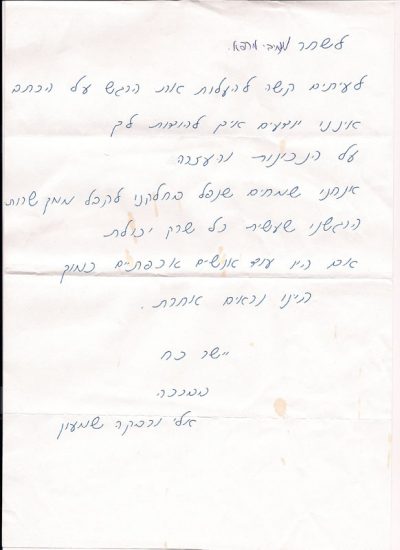 לשחר
לעיתים קשה להעלות את הרגש על הכתב
אינני יודעים איך להודות לך
על הנכונות והעזרה
אנחנו שמחים שנפל בחלקנו לקבל ממך שרות
הרגשנו שעשית כל שרק יכולת
אם היו עוד אנשים אכפתיים כמוך
היינו נראים אחרת.
יישר כח
מברכה
אלי ורבקה שמעון